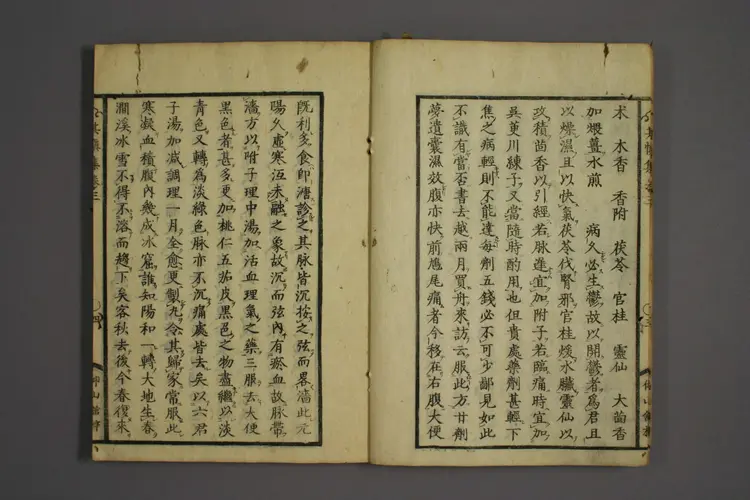 朮　木香　香附　茯苓　官桂　靈仙　大茴香
加煨薑水煎　　病久必生鬱故以開鬱者為君且
以燥濕且以快氣茯苓伐腎邪官桂煖水臟靈仙以
攻積茴香以引經若脉遲宜加附子若臨痛時宜加
吳茰川練子又當隨時酌用也但貴處藥劑甚輕下
焦之病輕則不能達每劑五錢必不可少鄙見如此
不識有當否書去越兩月買舟來訪云服此方廿劑
夢遺囊濕效腹亦快前應尾痛者今移在右腹大便
既利多食即溏診之其脉皆沉按之弦而畧濇此元
陽久虛寒沍未融之象故沉而弦內有瘀血故脉帶
濇方以附子理中湯加活血理氣之藥三服去大便
黑色者甚多更加桃仁五茄皮黑邑之物盡繼以淡
青色又轉為淡綠色脉亦不沉痛處皆去矣以六君
子湯加減調理一月全愈更製丸令其歸家常服此
寒凝血積腹內幾成冰窟誰知陽和一轉大地生春
澗溪冰雪不得不溶而趨下矣客秋去後今春復來